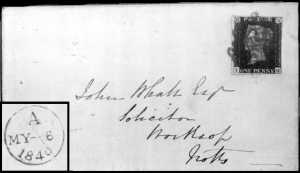 POSTAGE
ONE PENNY
John Whall Esqr
Solicitor
Worksop
Notts
A
MY-6
1840